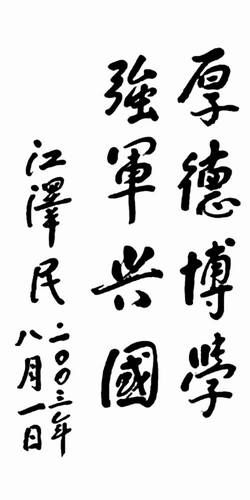 厚德博学
強軍兴國
江澤民
二〇〇三年
八月一日